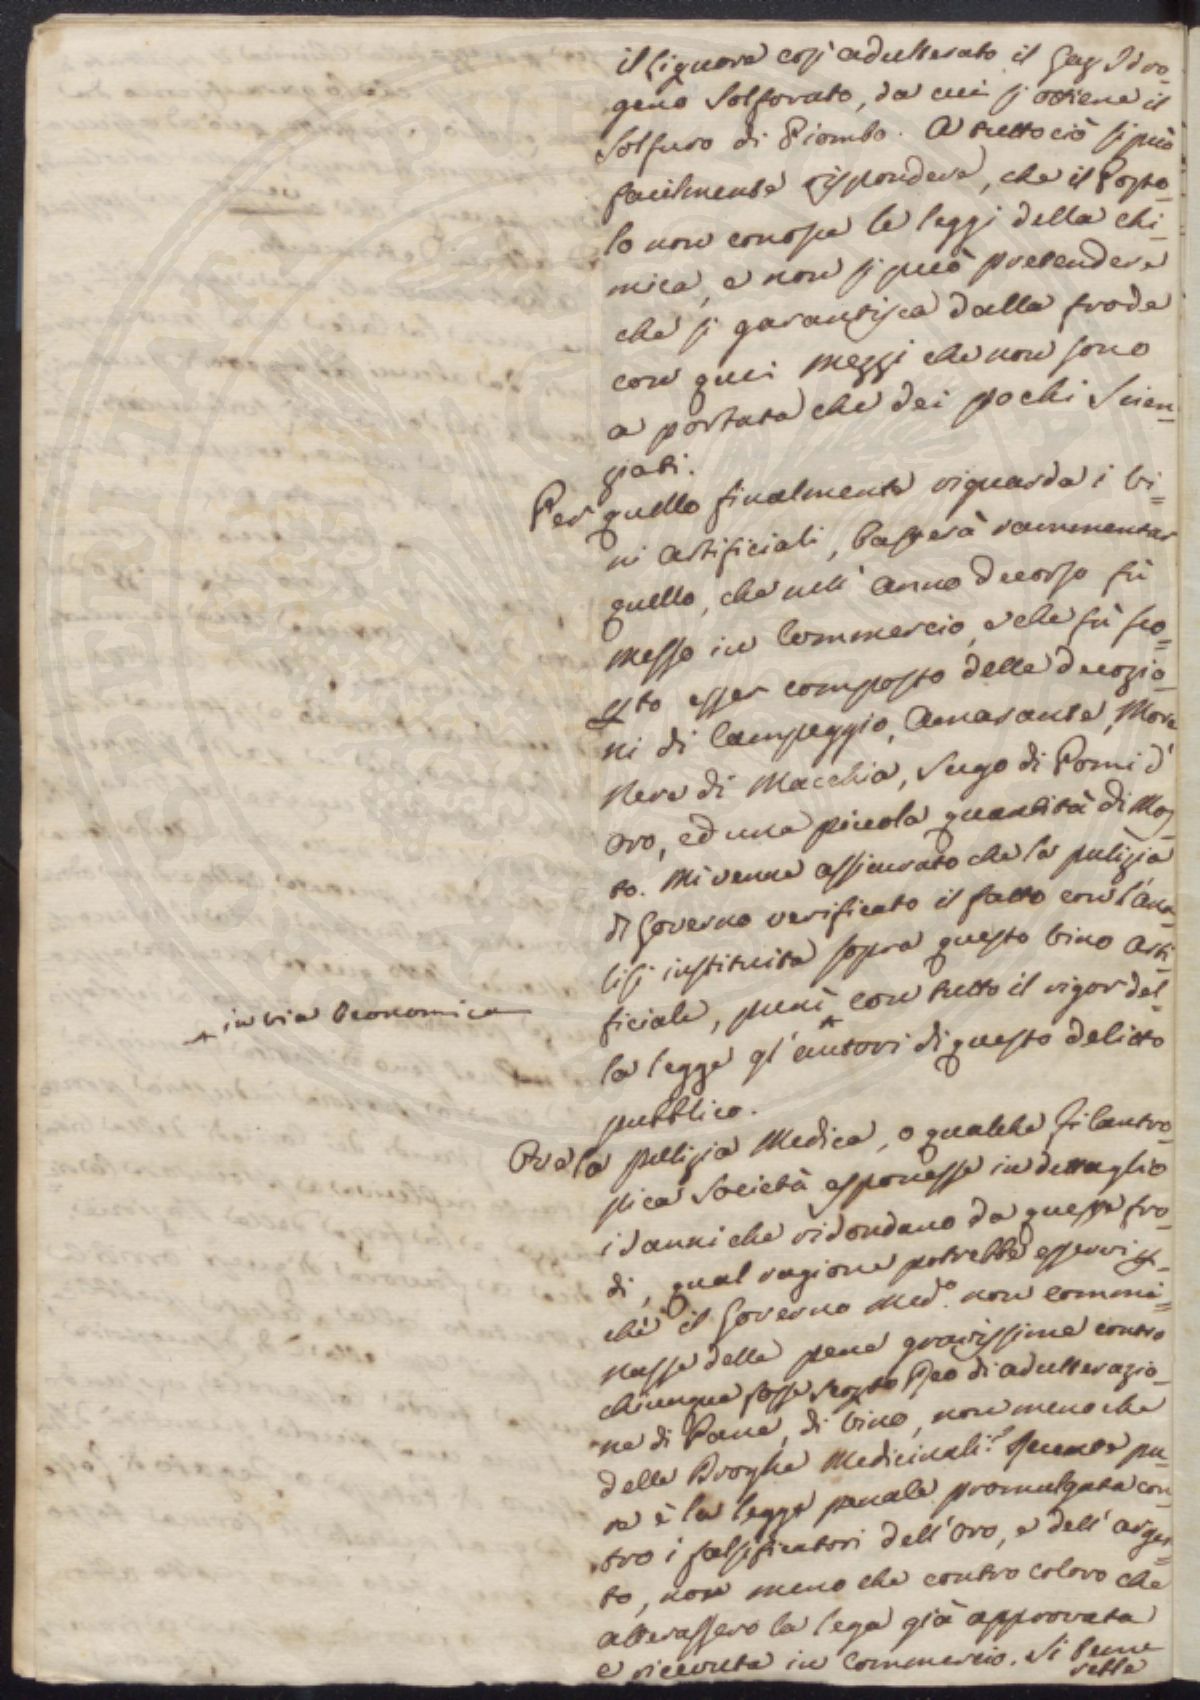 il liquore così adulterato il Gaz Idro-
geno Solforato, da cui si ottiene il
Solfuro di Piombo. A tutto ciò si può
facilmente rispondere, che il Popo-
lo non conosce le leggi della chi-
mica, e non si può pretendere
che si garantisca dalla frode
con quei mezzi che non sono
a portata che dei pochi Scien-
ziati.
Per quello finalmente riguarda i vi=
ni artificiali, basterà rammentar
quello, che nell' anno decorso fù
messo in Commercio, e che fù sco-
perto esser composto delle decozio-
ni di Campeggio, Amaranto, More
Nere di Macchia, Sugo di Pomi d'
oro, ed una piccola quantità di Mos-
to. Mi venne assicurato che la pulizia
di Governo verificato il fatto con l'ana-
lisi instituita sopra questo vino arti-
ficiale, punì ^ con tutto il vigor del-
^ in via Economica
la legge gl' autori di questo delitto
pubblico.
Ove la pulizia Medica, o qualche filantro-
pica Società esponesse in dettaglio
i danni che ridondano da queste fro-
di, qual ragione potrebbe esservi per-
chè il Governo Med.o non commi=
nasse delle pene gravissime contro
chiunque fosse scoperto Reo di adulterazio-
ne di Pane, di vino, non meno che
delle Droghe Medicinali? pu-
re è la legge penale promulgata con-
tro i falsificatori dell' oro, e dell' argen=
to, non meno che contro coloro che
alterassero la lega già approvata
e ricevuta in Commercio. Si